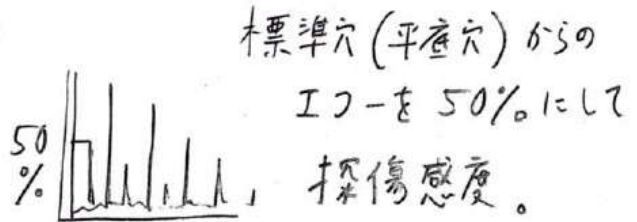 標準穴(平底穴)からの
エコーを50%にして
探傷感度。
50
%